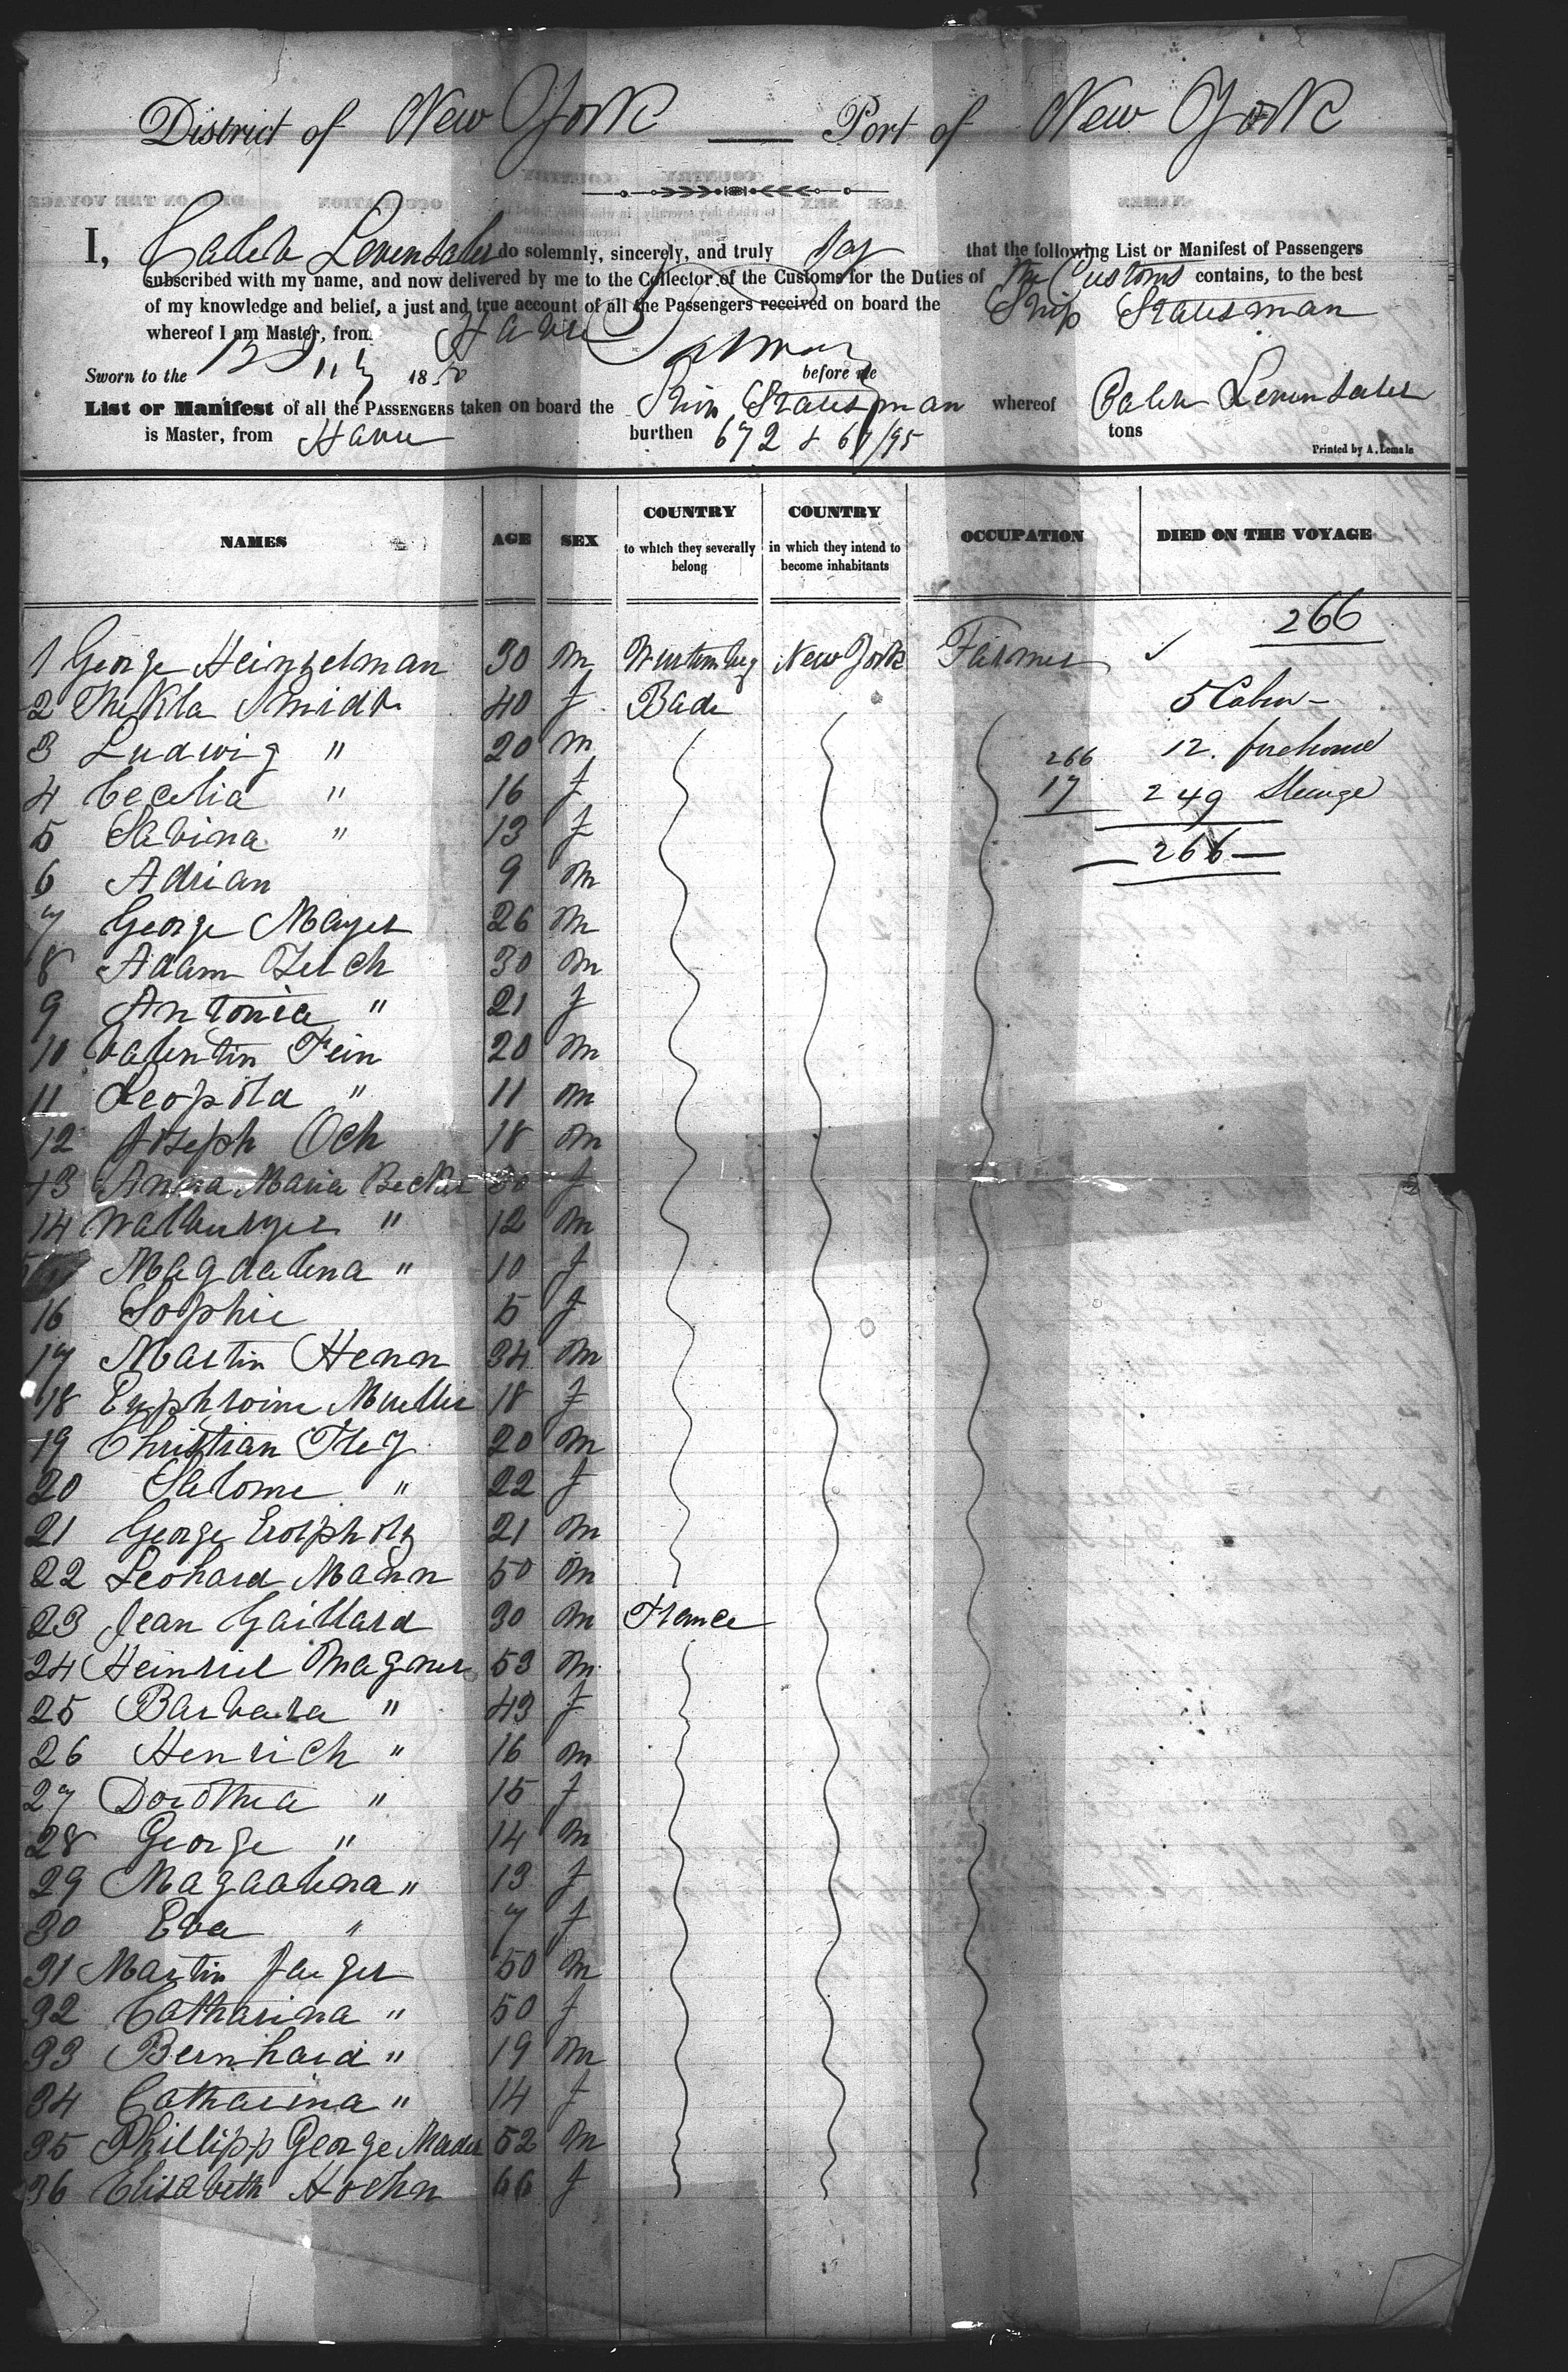 District of New York — Port of New York
I, Caleb Levensaler do solemnly, sincerely, and truly say that the following List or Manifest of Passengers
subscribed with my name, and now delivered by me to the Collector of the Customs for the Duties of the Customs contains, to the best
of my knowledge and belief, a just and true account of all the Passengers received on board the Ship Statesman
whereof I am Master, from Havre
Sworn to the 12 July 1850 before me
List or Manifest of all the PASSENGERS taken on board the Ship Statesman whereof Caleb Levensaler
is Master, from Havre burthen 672 & 67/95 tons
Printed by A. Lemale
NAMES AGE SEX COUNTRY to which they severally belong COUNTRY in which they intend to become inhabitants OCCUPATION DIED ON THE VOYAGE
266
1 George Heinzelman 30 m Wurtemberg New York Farmer ✓
2 Thekla Smidt 40 f Bade 5 Cabin -
3 Ludwig " 20 m 266 12.
4 Cecelia " 16 f 17 249 Steerage
5 Sabina " 13 f 266
6 Adrian 9 m
7 George Mayer 26 m
8 Adam Zeich 30 m
9 Antonia " 21 f
10 Valentin Fein 20 m
11 Leopold " 11 m
12 Joseph Och 18 m
13 Anna Maria Becker 30 f
14 Walburger " 12 m
Magdalena " 10 f
16 Sophie 5 f
17 Martin Henn 34 m
18 Euphrosine Mueller 18 f
19 Christian Fleg 20 m
20 Salome " 22 f
21 George 21 m
22 Leohard Mann 50 m
23 Jean Gaillard 30 m France
24 Heinriel Magner 53 m
25 Barbara " 43 f
26 Henrich " 16 m
27 Dorothea " 15 f
28 George " 14 m
29 Magdalena " 13 f
30 Eva " 7 f
31 Martin Jaeger 50 m
32 Catharina " 50 f
33 Bernhard " 19 m
34 Catharina " 14 f
35 Phillipp George Mader 52 m
36 Elisabeth Hoehn 66 f